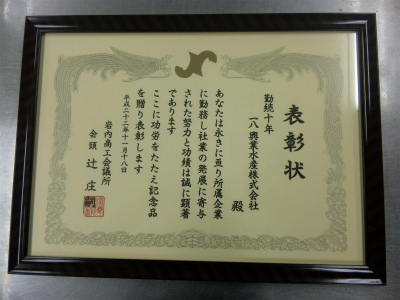 表彰状
勤続十年
一八興業水産株式会社
殿
あなたは永きに亘り所属企業
に勤務し社業の発展に寄与
された努力と功績は誠に顕著
であります
ここに功労をたたえ記念品
を贈り表彰します
平成二十二年十一月十八日
岩内商工会議所
会頭 辻 庄